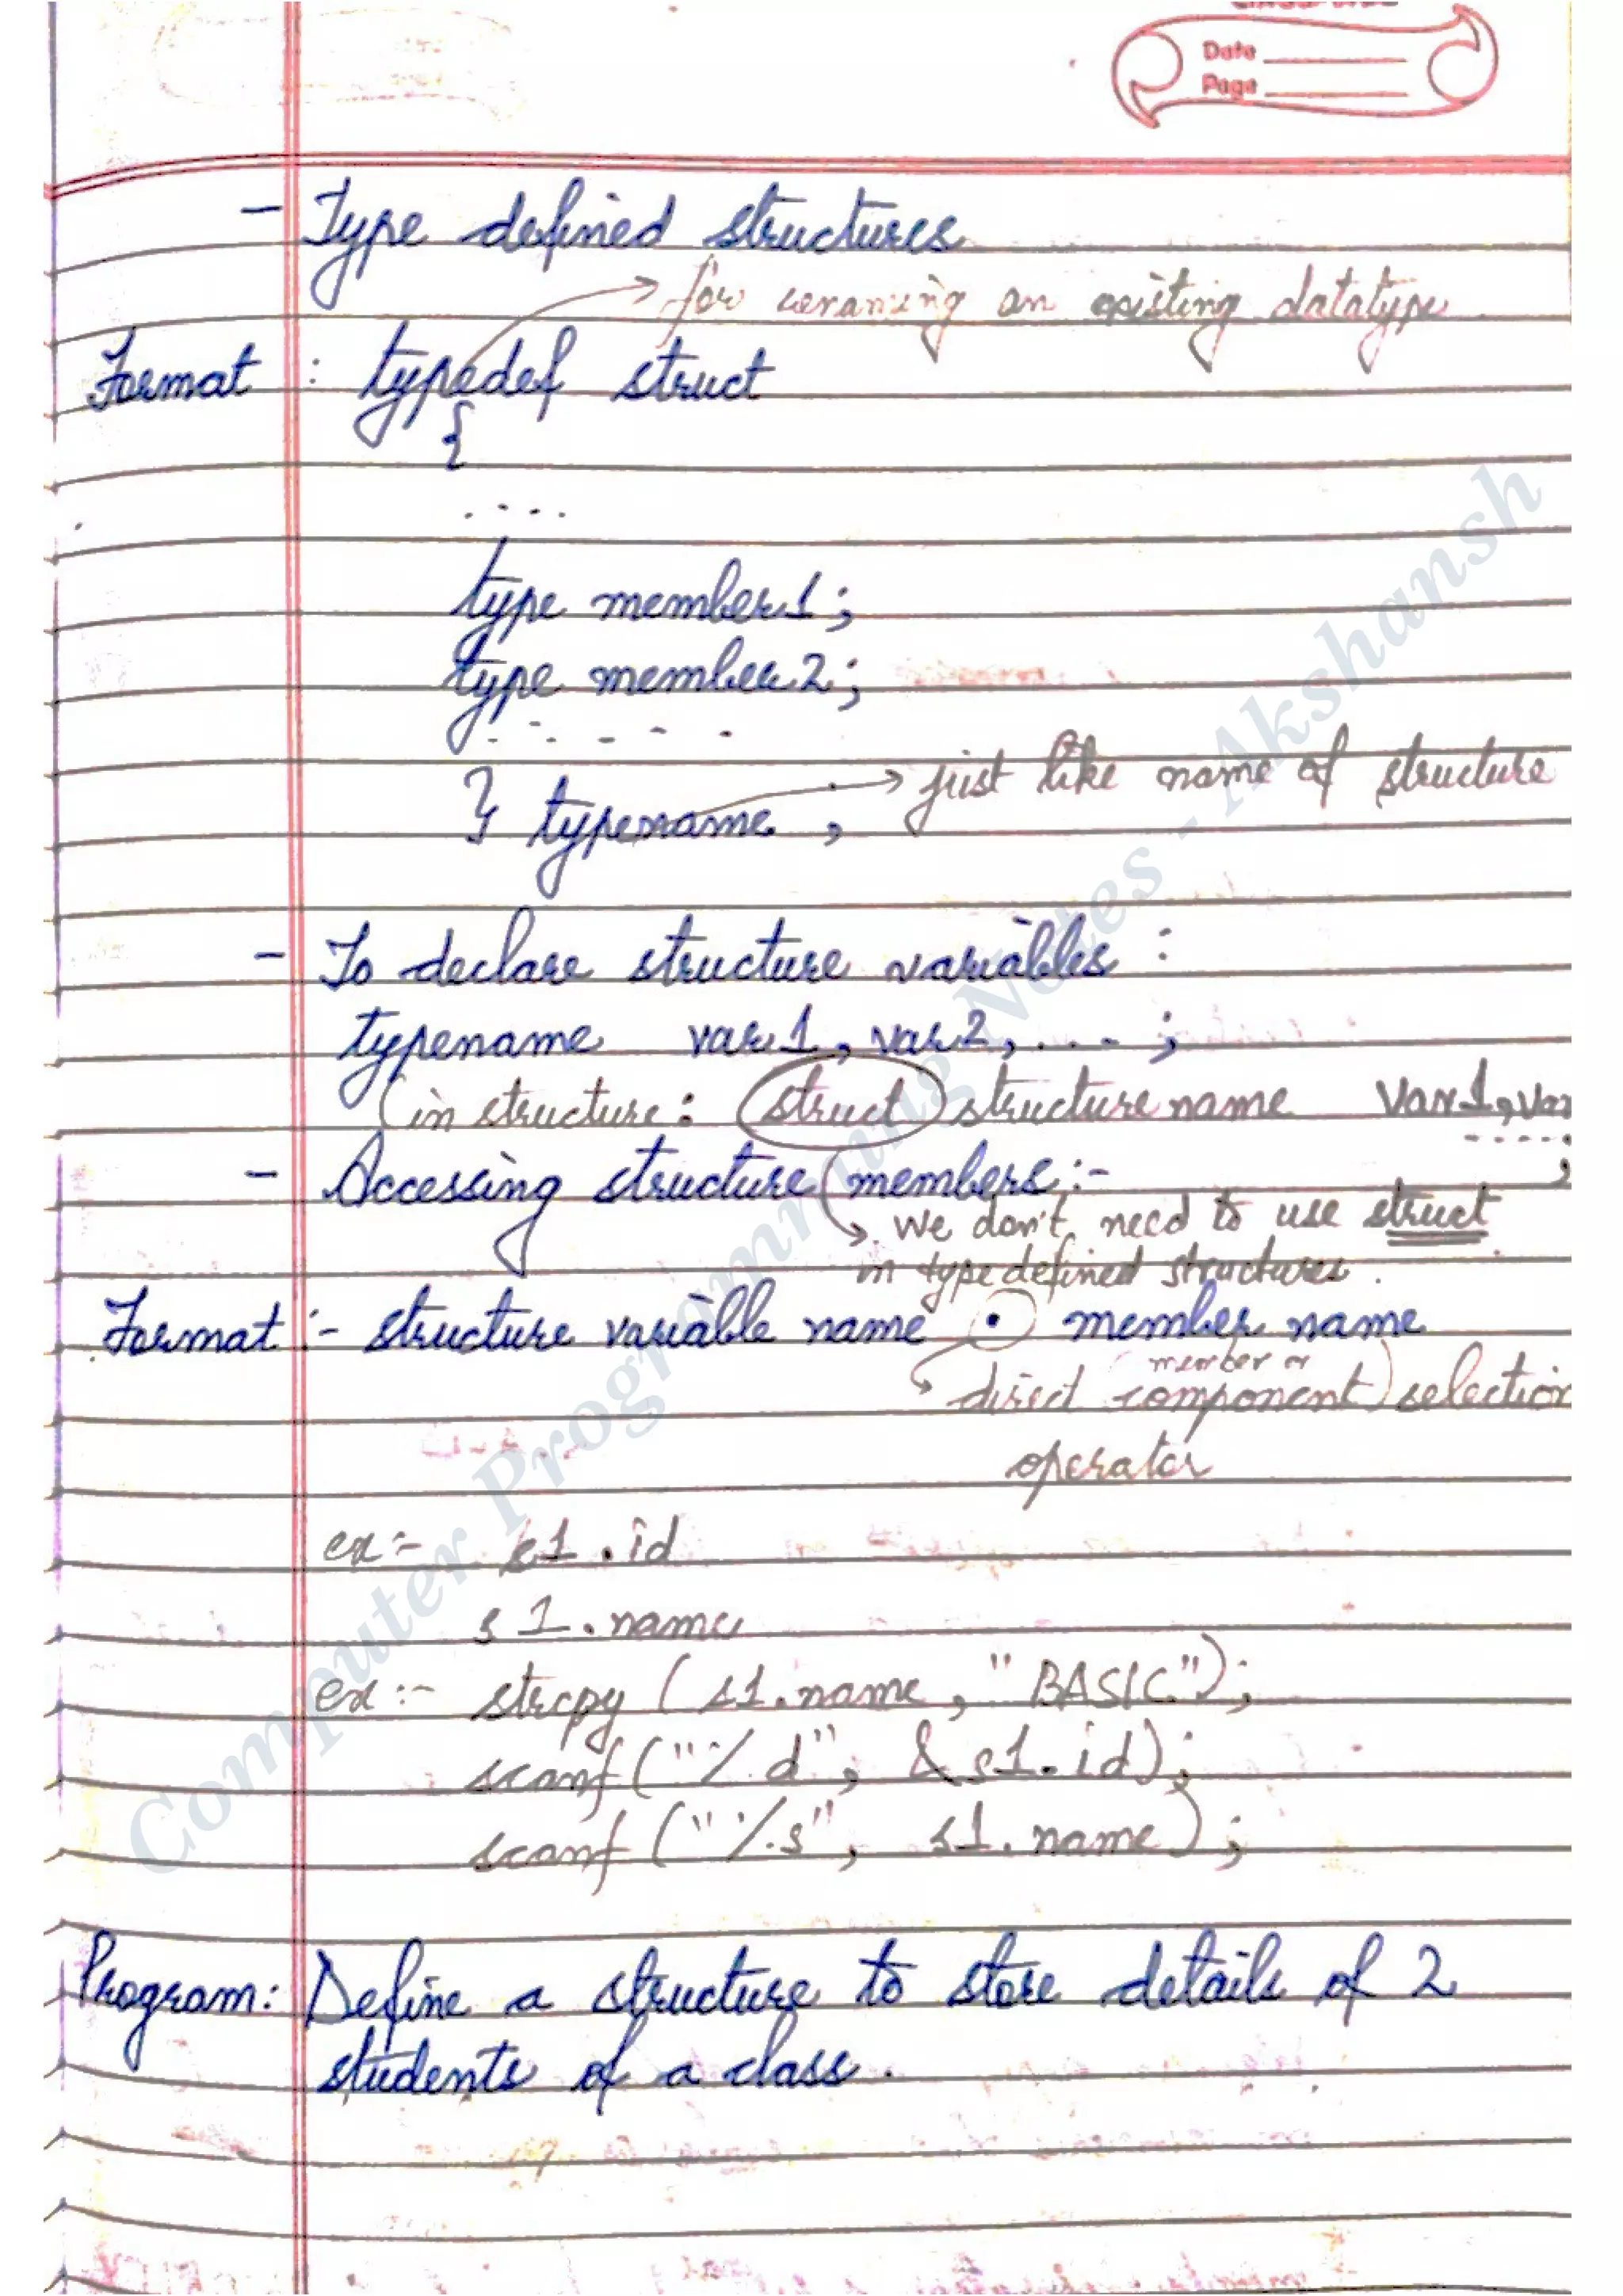 Date
Page
- Type defined structures
→ for renaming an existing datatype
Format : typedef struct
{
....
type member1;
type member2;
- - - - - -
} typename ; → just like name of structure
- To declare structure variables :
typename var1, var2, .... ;
(in structure: struct structure name var1, var
.... ;
- Accessing structure members:-
↳ we don't need to use struct
in type defined structures.
Format :- structure variable name . member name
member or
↳ direct component) selection
operator
ex:- s1.id
s1.name
ex:- strcpy (s1.name, "BASIC");
scanf("%d", &s1.id);
scanf("%s", s1.name);
Program: Define a structure to store details of 2
students of a class.
Computer Programming Notes - Akshansh